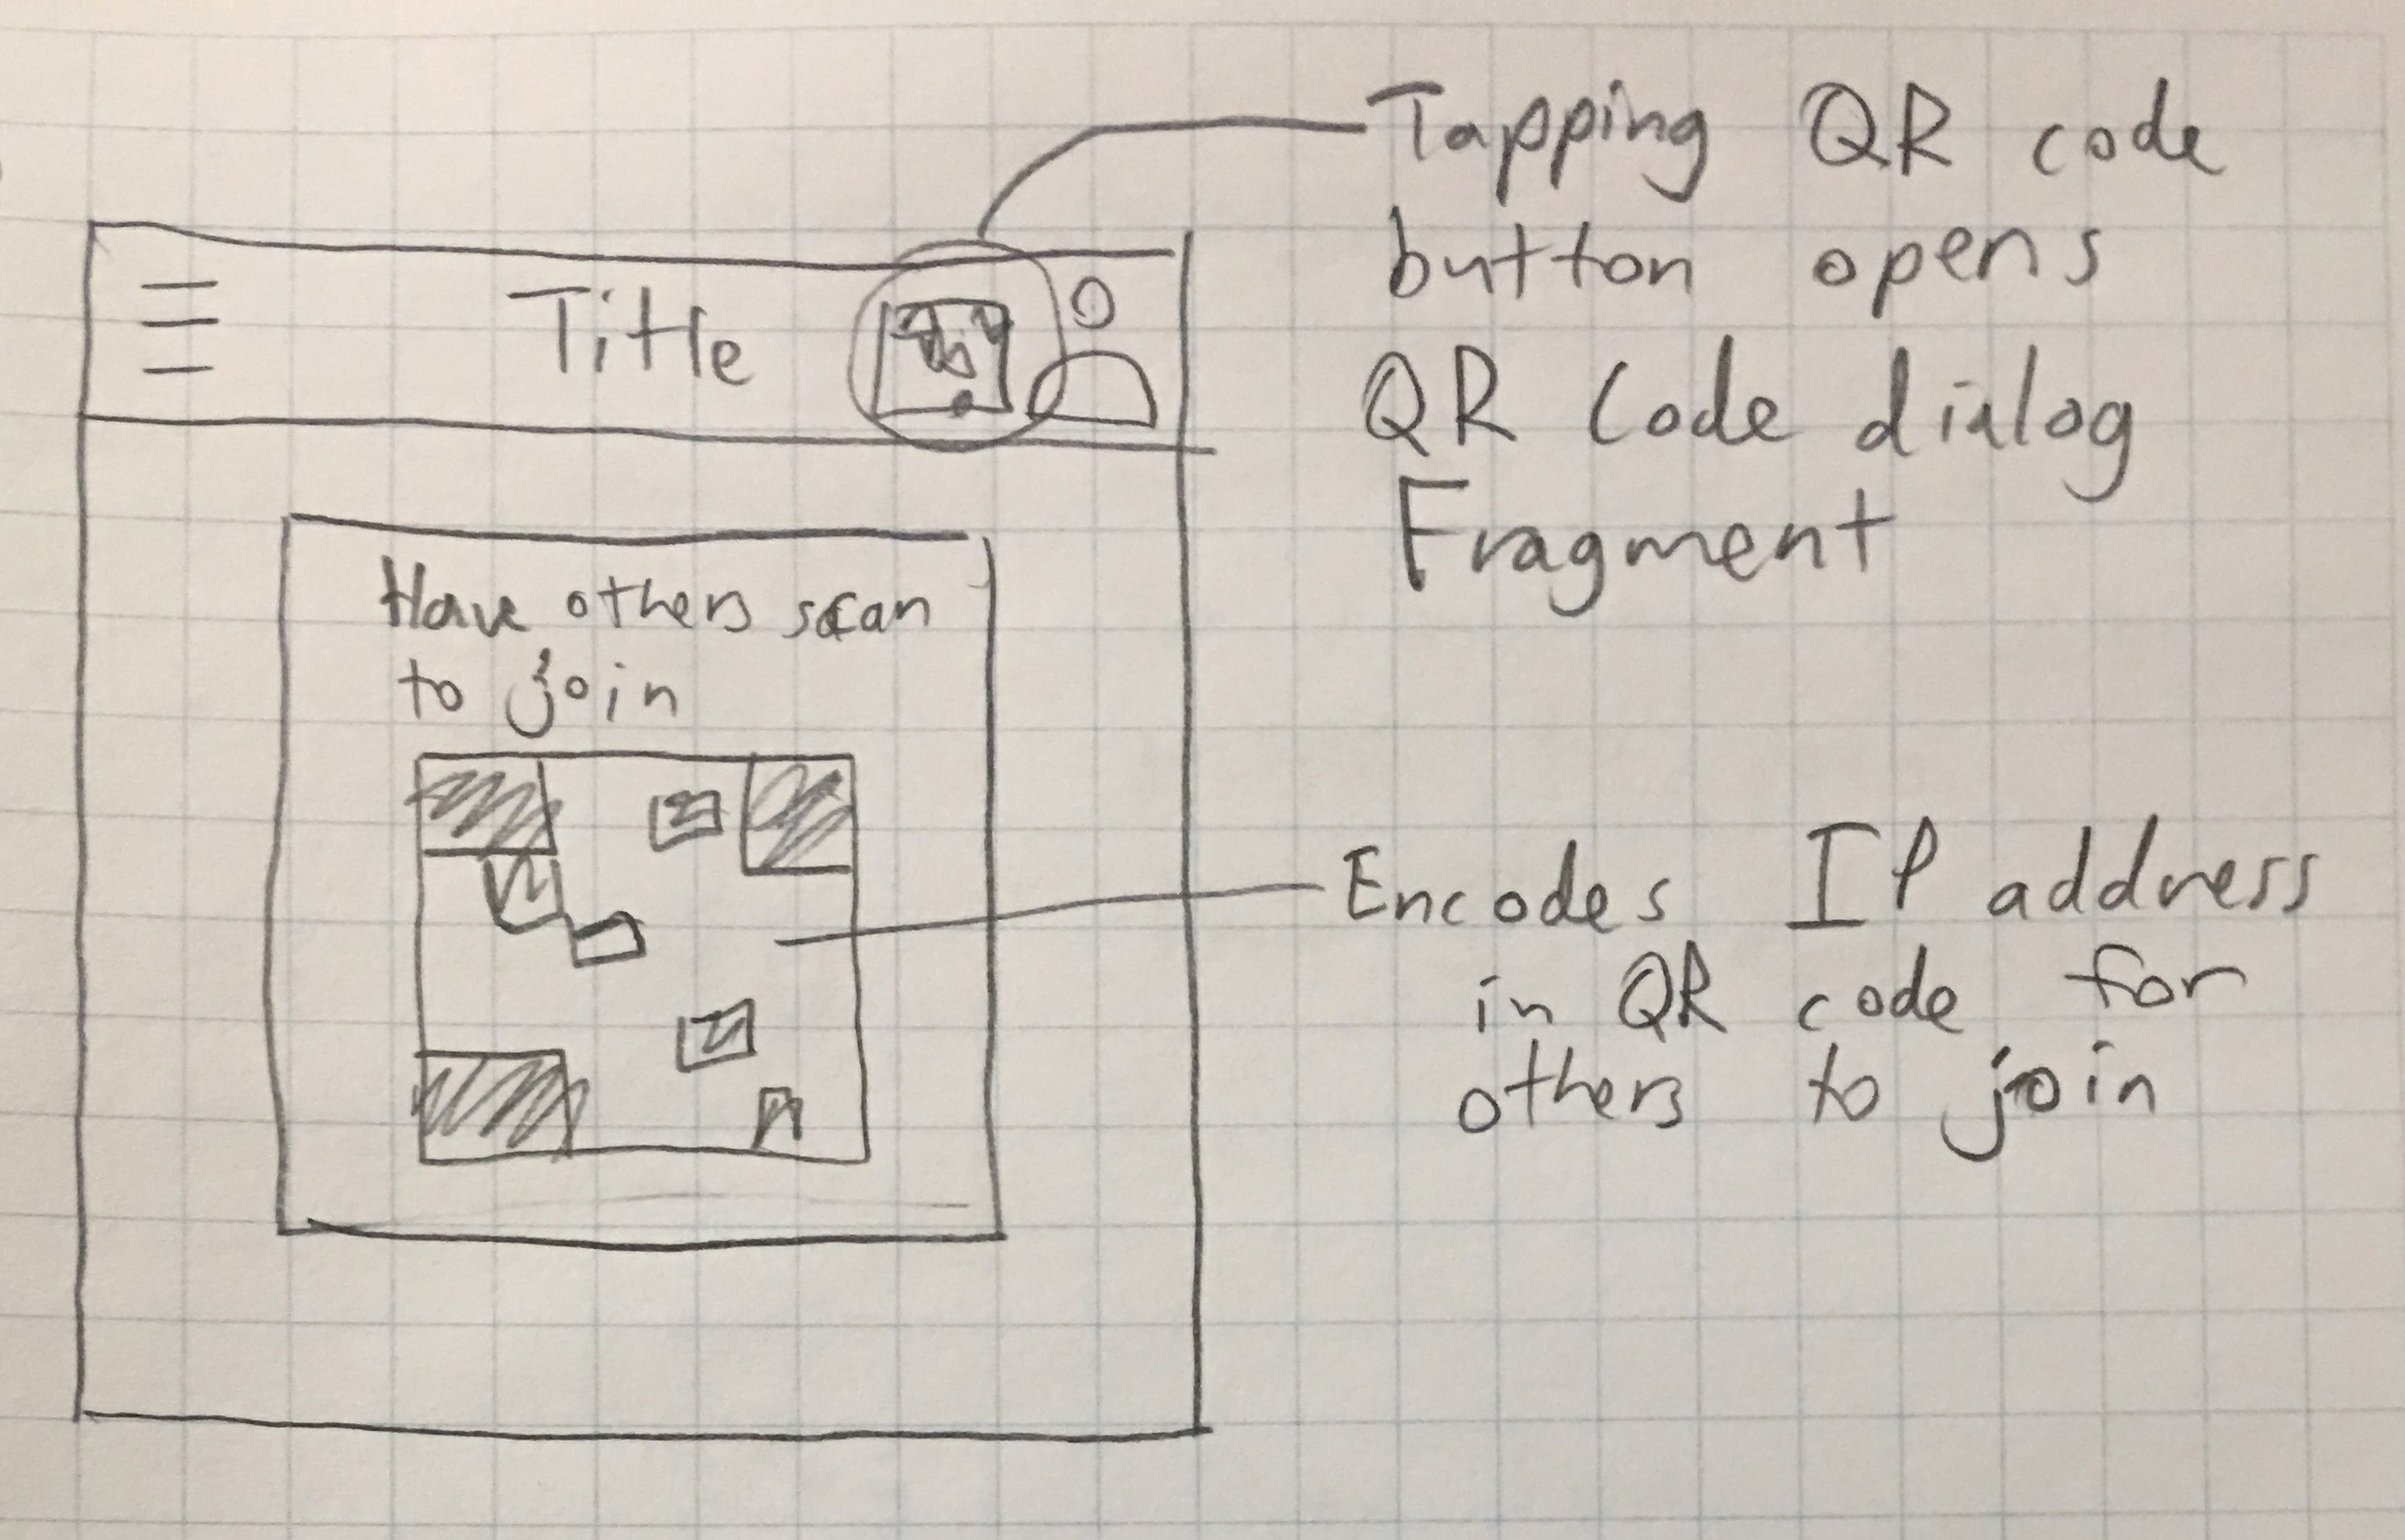 Title
Have others scan
to join
Tapping QR code
button opens
QR Code dialog
Fragment
Encodes IP address
in QR code for
others to join